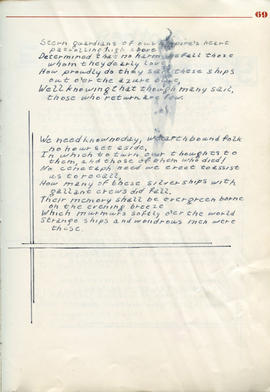 69
Stern guardians of our Empire's heart
patrolling high above
Determined that no harm befall those
whom they dearly love
How proudly do they sail these ships
out o'er the azure blue,
Well knowing that though many sail,
those who return are few.
We need know no day, we earthbound folk
no hour set aside,
In which to turn our thoughts to
them, and those of them who died!
No cenotaph need we erect to assist
us to recall,
How many of these silver ships with
gallant crews did fall.
Their memory shall be evergreen borne
on the evening breeze
Which murmurs softly o'er the world
Strange ships and wondrous men were
these.